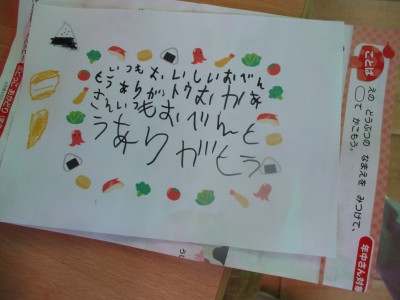 いつもおいしいおべん
とうありがトウおかあ
さんいつもおべんと
うありがとう
ことば
えの どうぶつの なまえを みつけて、
◯で かこもう。
年中さん対